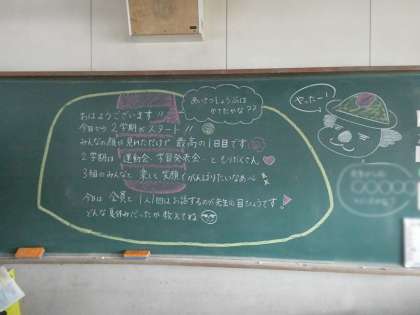 あいさつしょうぶは
かてたかな??
やったー!
おはようございます!!
今日から2学期がスタート!!
みんなの顔が見れただけで 最高の1日目です
2学期は 運動会・学習発表会…ともりだくさん
3組のみんなと 楽しく 笑顔でがんばりたいなあ
今日は 全員と 1人1回はお話するのが先生の目ひょうです!
どんな夏休みだったか 教えてね